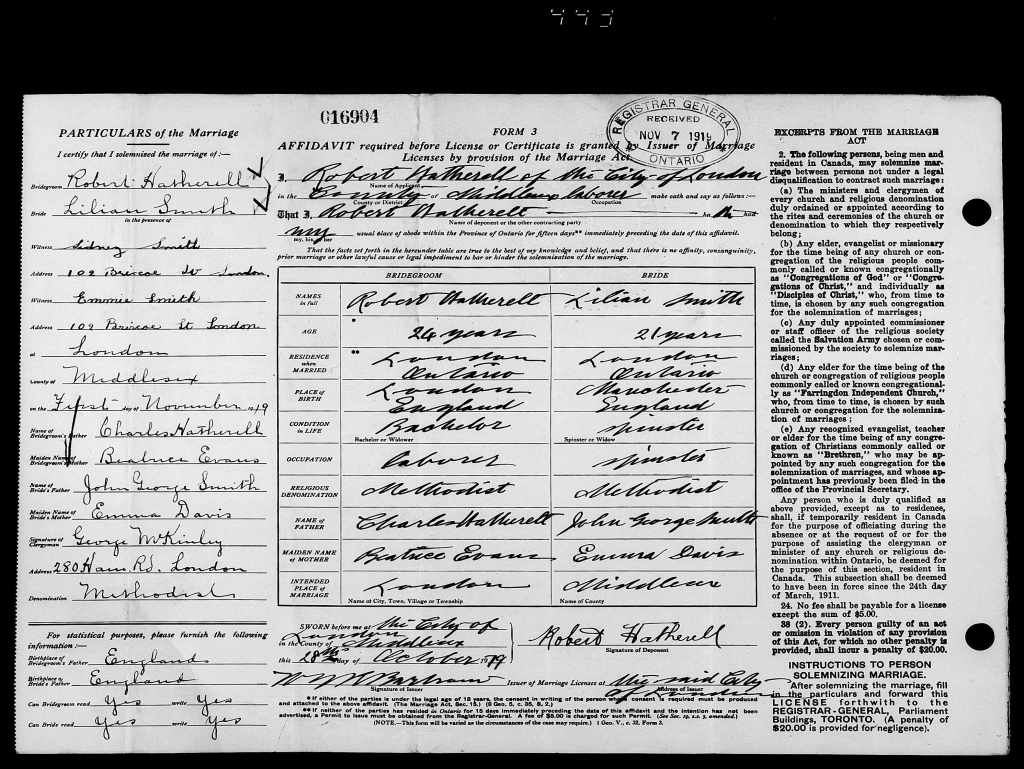 443
PARTICULARS of the Marriage
I certify that I solemnized the marriage of :—
Bridegroom Robert Hatherell
Bride Lilian Smith
in the presence of
Witness Sidney Smith
Address 102 Briscoe St London.
Witness Emmie Smith
Address 102 Briscoe St London
at London
County of Middlesex
on the First day of November 1919
Name of Bridegroom's Father Charles Hatherell
Maiden Name of Bridegroom's Mother Beatrice Evans
Name of Bride's Father John George Smith
Maiden Name of Bride's Mother Emma Davis
Signature of Clergyman George McKinley
Address 280 Ham. Rd. London
Denomination Methodist
For statistical purposes, please furnish the following
information :—
Birthplace of Bridegroom's Father England
Birthplace of Bride's Father England
Can Bridegroom read Yes write Yes
Can Bride read Yes write Yes
016904
REGISTRAR GENERAL
RECEIVED
NOV 7 1919
ONTARIO
FORM 3
AFFIDAVIT required before License or Certificate is granted by Issuer of Marriage
Licenses by provision of the Marriage Act.
I, Robert Hatherell of the City of London
Name of Applicant
in the County of Middlesex laborer make oath and say as follows :—
County or District
Occupation
That I Robert Hatherell
Name of deponent or the other contracting party
my usual place of abode within the Province of Ontario for fifteen days** immediately preceding the date of this affidavit.
my, his, her
That the facts set forth in the hereunder table are true to the best of my knowledge and belief, and that there is no affinity, consanguinity,
prior marriage or other lawful cause or legal impediment to bar or hinder the solemnization of the marriage.
BRIDEGROOM BRIDE
NAMES in full Robert Hatherell Lilian Smith
AGE * 24 years 21 years
RESIDENCE when MARRIED ** London Ontario London Ontario
PLACE OF BIRTH London England Manchester England
CONDITION IN LIFE Bachelor Spinster
Bachelor or Widower Spinster or Widow
OCCUPATION laborer spinster
RELIGIOUS DENOMINATION Methodist Methodist
NAME OF FATHER Charles Hatherell John George Smith
MAIDEN NAME OF MOTHER Beatrice Evans Emma Davis
INTENDED PLACE OF MARRIAGE London Middlesex
Name of City, Town, Village or Township Name of County
SWORN before me at the City of
London
in the County of Middlesex
this 28th day of October 1919
Robert Hatherell
Signature of Deponent
Bartram Issuer of Marriage Licenses at the said City
of London
Signature of Issuer Address of Issuer
* If either of the parties is under the legal age of 18 years, the consent in writing of the person whose consent is required must be produced
and attached to the above affidavit. (The Marriage Act, Sec. 15.) (9 Geo. 5, c. 35, S. 2.)
** If neither of the parties has resided in Ontario for 15 days immediately preceding the date of this affidavit and the intention has not been
advertised, a Permit to Issue must be obtained from the Registrar-General. A fee of $5.00 is charged for such Permit.
(NOTE.—This form will be varied as the circumstances of the case may require.) 1 Geo. V., c. 32, Form 3.
EXCERPTS FROM THE MARRIAGE
ACT
2. The following persons, being men and
resident in Canada, may solemnize mar-
riage between persons not under a legal
disqualification to contract such marriage:
(a) The ministers and clergymen of
every church and religious denomination
duly ordained or appointed according to
the rites and ceremonies of the church or
denomination to which they respectively
belong;
(b) Any elder, evangelist or missionary
for the time being of any church or con-
gregation of the religious people com-
monly called or known congregationally
as "Congregations of God" or "Congre-
gations of Christ," and individually as
"Disciples of Christ," who, from time to
time, is chosen by any such congregation
for the solemnization of marriages;
(c) Any duly appointed commissioner
or staff officer of the religious society
called the Salvation Army chosen or com-
missioned by the society to solemnize mar-
riages;
(d) Any elder for the time being of the
church or congregation of religious people
commonly called or known congregational-
ly as "Farringdon Independent Church,"
who, from time to time, is chosen by such
church or congregation for the solemniza-
tion of marriages;
(e) Any recognized evangelist, teacher
or elder for the time being of any congre-
gation of Christians commonly called or
known as "Brethren," who may be ap-
pointed by any such congregation for the
solemnization of marriages, and whose ap-
pointment has previously been filed in the
office of the Provincial Secretary.
Any person who is duly qualified as
above provided, except as to residence,
shall, if temporarily resident in Canada
for the purpose of officiating during the
absence or at the request of or for the
purpose of assisting the clergyman or
minister of any church or religious de-
nomination within Ontario, be deemed for
the purpose of this section, resident in
Canada. This subsection shall be deemed
to have been in force since the 24th day
of March, 1911.
24. No fee shall be payable for a license
except the sum of $5.00.
38 (2). Every person guilty of an act
or omission in violation of any provision
of this Act, for which no other penalty is
provided, shall incur a penalty of $20.00.
INSTRUCTIONS TO PERSON
SOLEMNIZING MARRIAGE.
After solemnizing the marriage, fill
in the particulars and forward this
LICENSE forthwith to the
REGISTRAR-GENERAL, Parliament
Buildings, TORONTO. (A penalty of
$20.00 is provided for negligence).